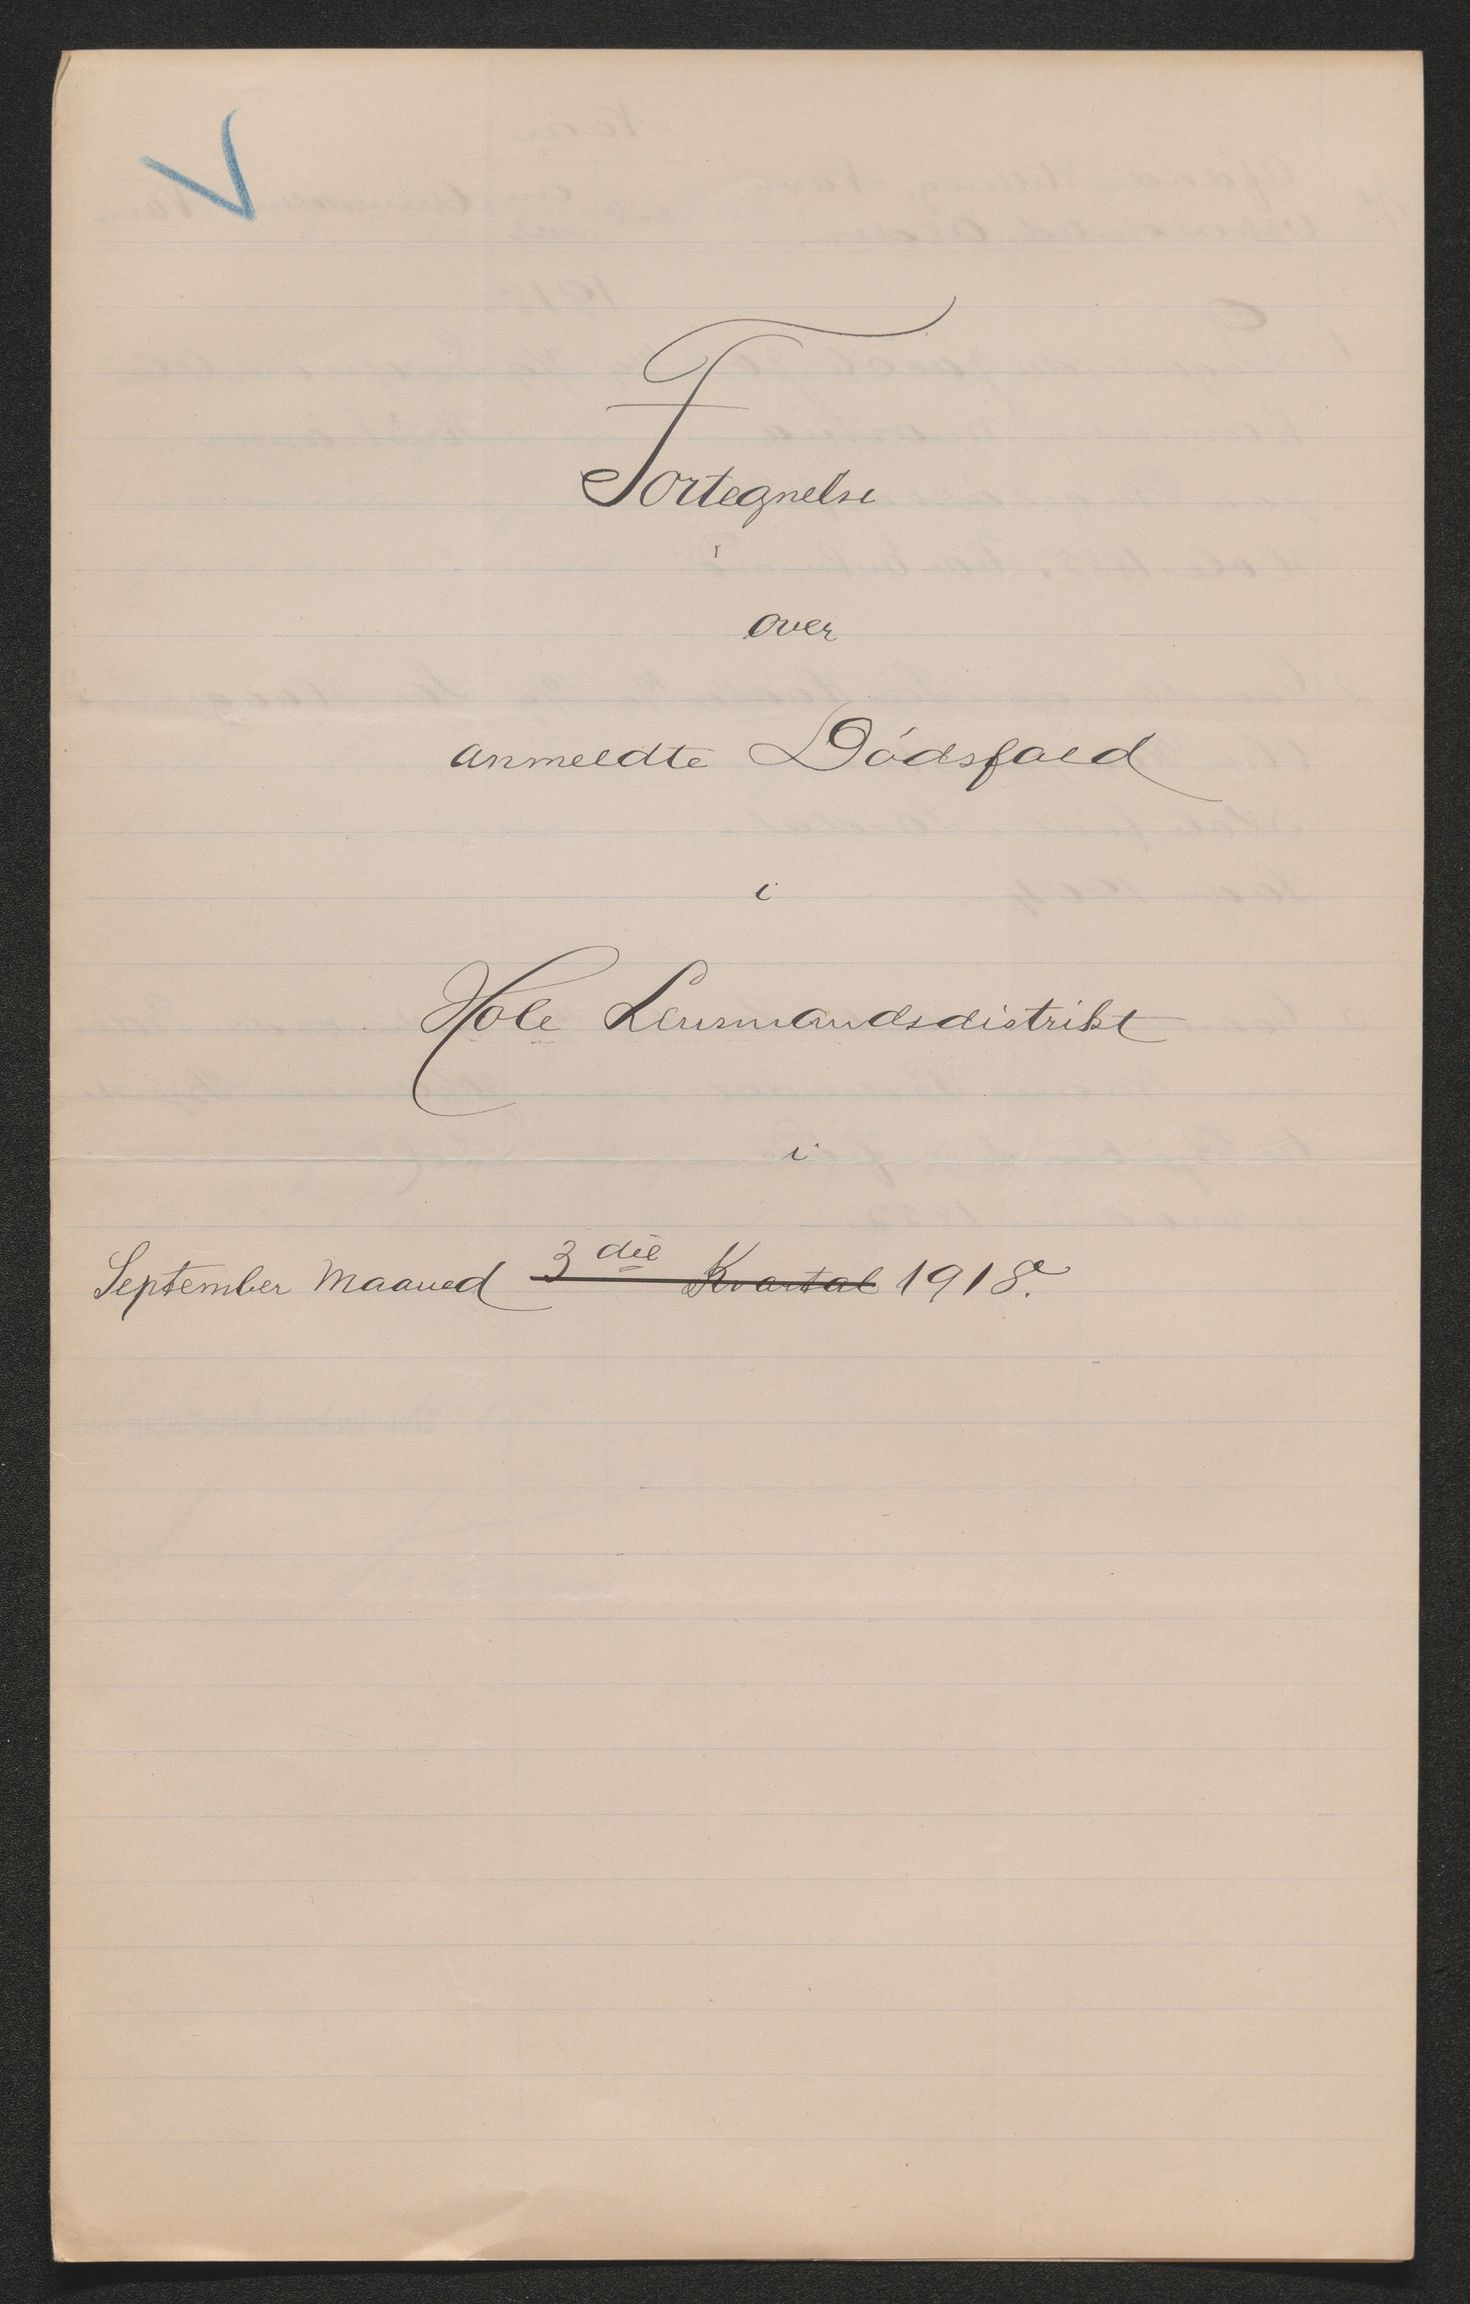 Fortegnelse
over
anmeldte Dødsfald
i
Hole Lensmandsdistrikt
i
September Maaned 3die Kvartal 1918.